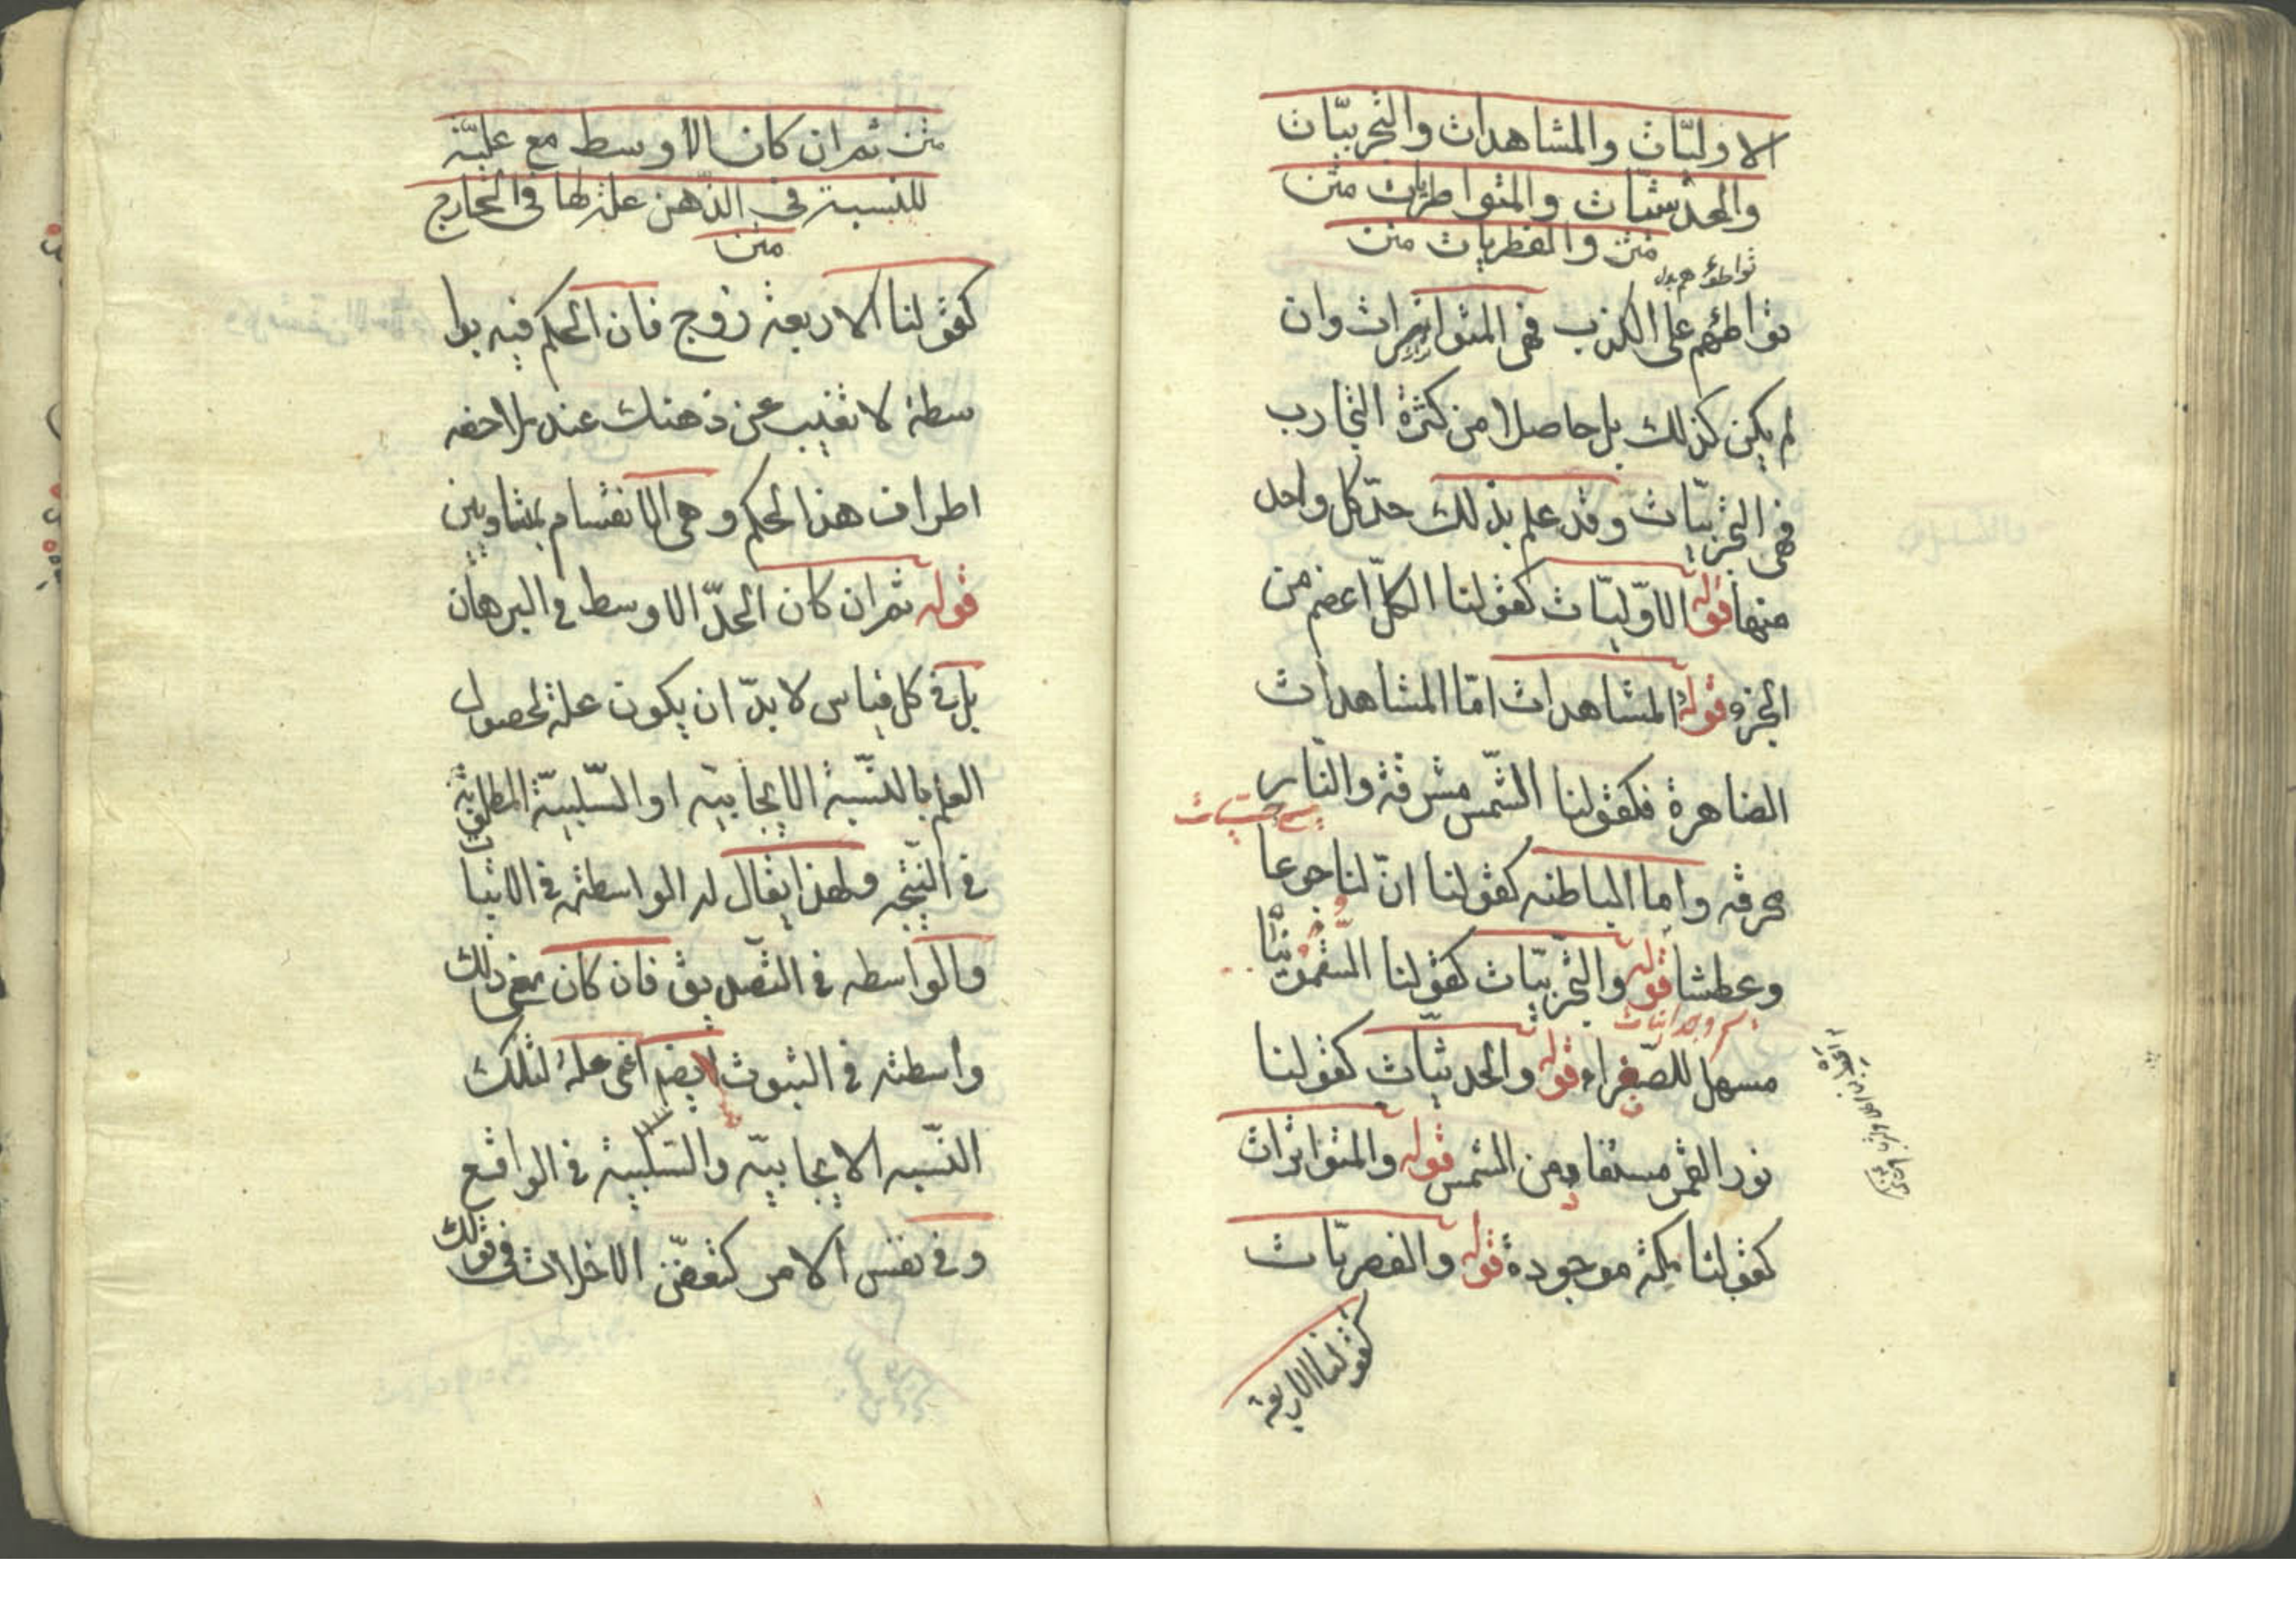 الاوليّات والمشاهدات والتجربيّات
والحدسيّات والمتواطرات متن
متن والفطريات متن
تواطؤهم بدل
تواطئهم على الكذب فهى المتواترات وان
لم يكن كذلك بل حاصلا من كثرة التجارب
فهى التجربيّات وقد علم بذلك حدّ كل واحد
منها قوله الاوّليّات كقولنا الكلّ اعضم من
الجزء قوله المشاهدات امّا المشاهدات
الضاهرة فكقولنا الشّمس مشرقة والنّار
حسيات
محرقه واما الباطنه كقولنا انّ لنا جوعا
وعطشا قوله والتجربيّات كقولنا السّقمونيّا
وجدانيات
مسهل للصّفراء قوله والحدسيّات كقولنا
نور القمر مستفاد من الشمس قوله والمتواترات
كقولنا مكة موجودة قوله والفصريّات
كقولنا الاربعة
متن ثم ان كان الاوسط مع عليّة
للنسبة فى الذّهن علة لها فى الخارج
متن
كقولنا الاربعة زوج فان الحكم فيه بوا
سطة لا تغيب عن ذهنك عند ملاحضه
اطراف هذا الحكم وهى الانقسام بمتساويين
قوله ثم ان كان الحدّ الاوسط فى البرهان
بل فى كل قياس لا بدّ ان يكون علة لحصول
العلم بالنّسبة الايجابيّة او السّلبيّة المطلوبة
فى النّتيجه ولهذا يقال له الواسطة فى الاثبا
والواسطه فى التّصديق فان كان مع ذلك
واسطة فى الثبوت ايضا اى علة لتلك
النّسبه الايجابيّة والسّلبية فى الواقع
وفى نفس الامر كتعفّن الاخلاط فى قولك